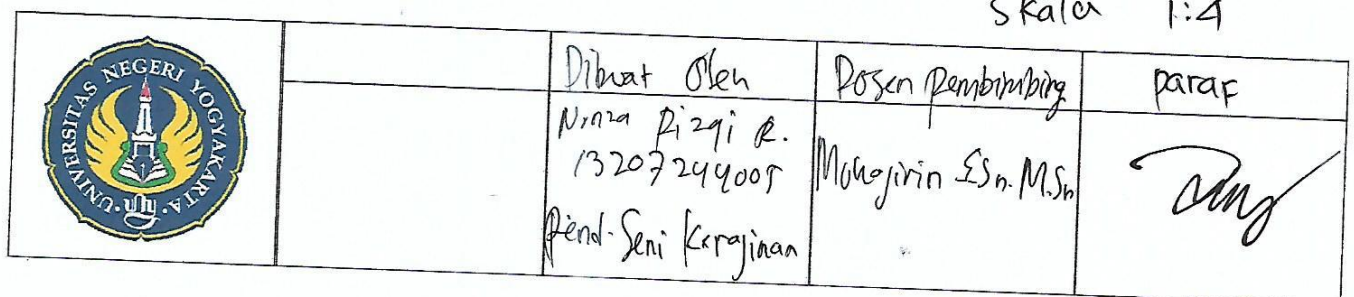 Skala 1:4
UNIVERSITAS NEGERI YOGYAKARTA
Dibuat Oleh
Dosen Pembimbing
paraf
Ninza Rizqi R.
13207244005
Pend. Seni Kerajinan
Muhajirin S.Sn. M.Sn